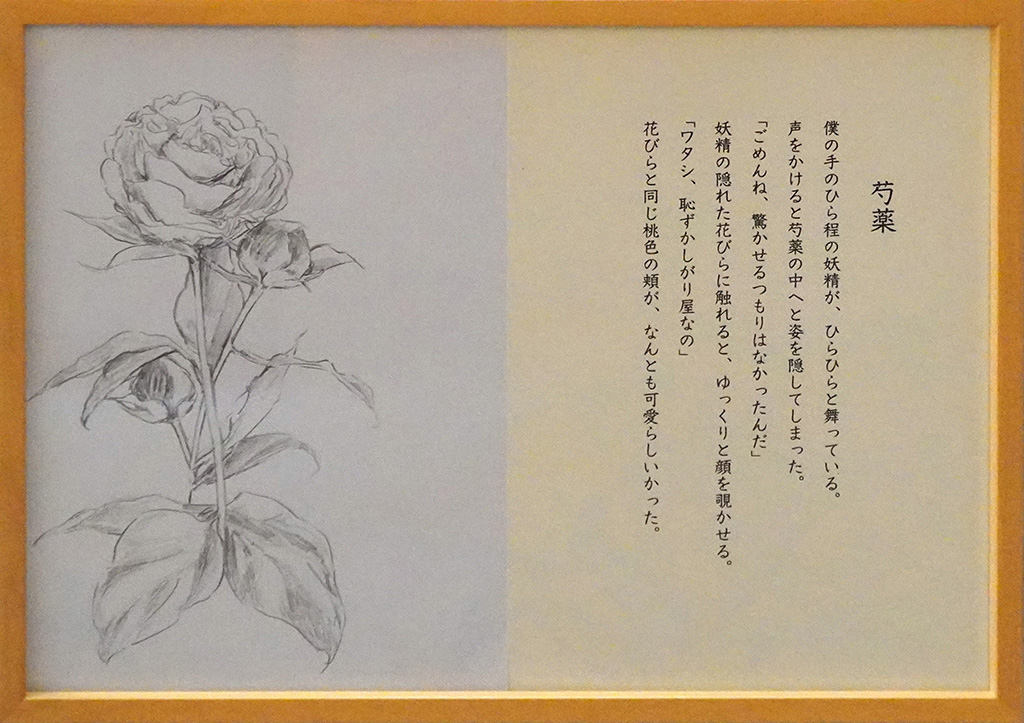 芍薬
僕の手のひら程の妖精が、ひらひらと舞っている。
声をかけると芍薬の中へと姿を隠してしまった。
「ごめんね、驚かせるつもりはなかったんだ」
妖精の隠れた花びらに触れると、ゆっくりと顔を覗かせる。
「ワタシ、恥ずかしがり屋なの」
花びらと同じ桃色の頬が、なんとも可愛らしいかった。